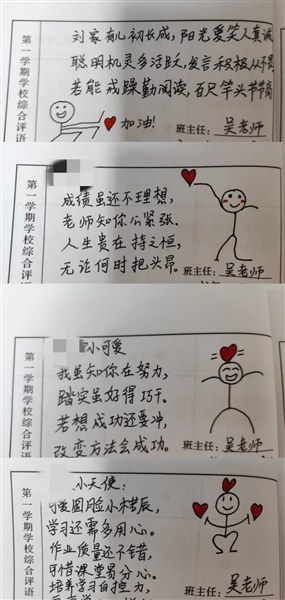 第一学期学校综合评语
刘家有儿初长成，阳光爱笑人真诚
聪明机灵多活跃，发言积极从不畏
若能戒躁勤阅读，百尺竿头节节高
加油！
班主任：吴老师
第一学期学校综合评语
成绩虽还不理想，
老师知你心紧张．
人生贵在持之恒，
无论何时把头昂。
班主任：吴老师
第一学期学校综合评语
小可爱
我虽知你在努力，
踏实虽好得巧干。
若想成功还要冲，
改变方法会成功。
班主任：吴老师
第一学期学校综合评语
小天使：
圆脸小
学习还需多用心。
作业质量还不错，
可惜课堂易分心。
培养学习自控力，
吴老师